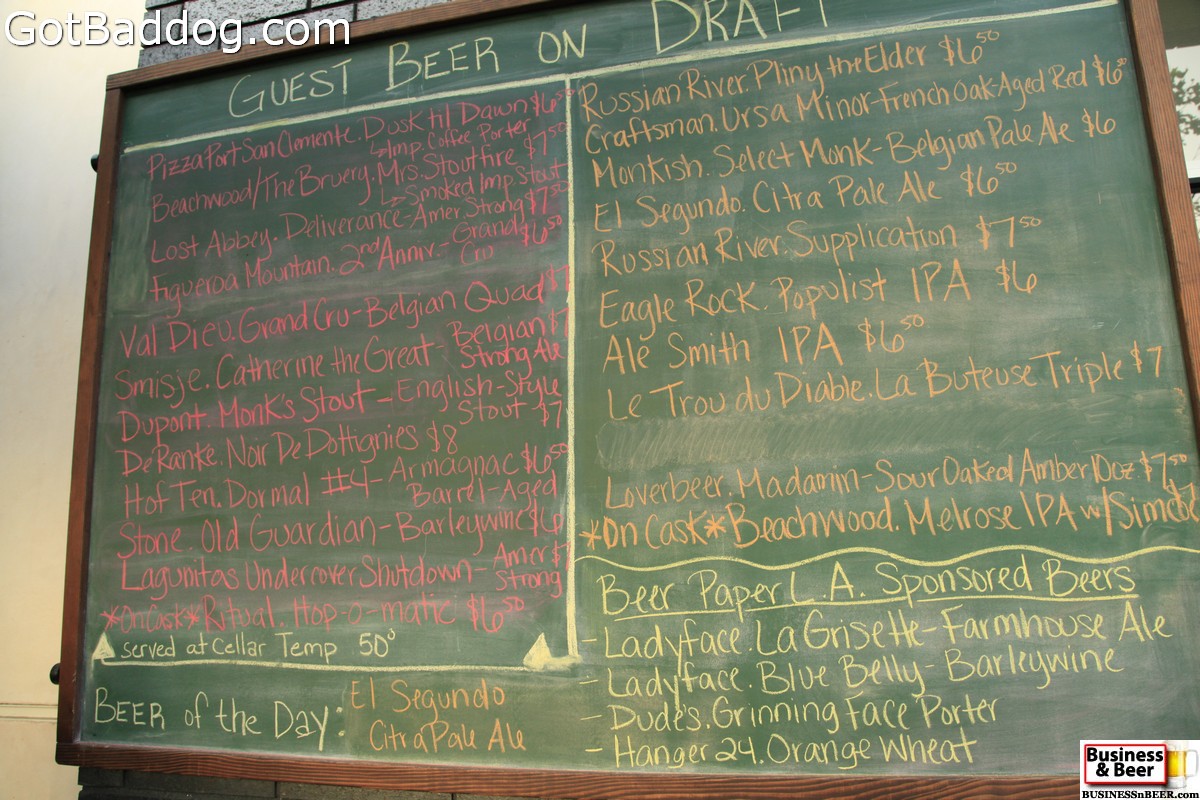 GotBaddog.com
GUEST BEER ON DRAFT
Pizza Port San Clemente. Dusk til Dawn $6.50
↳Imp. Coffee Porter
Beachwood/The Bruery. Mrs. Stoutfire $7.50
↳Smoked Imp. Stout
Lost Abbey. Deliverance-Amer. Strong $7.50
Figueroa Mountain. 2nd Anniv.- Grand $6.50
Cru
Val Dieu. Grand Cru-Belgian Quad $7
Smisje. Catherine the Great- Belgian $7
Strong Ale
Dupont. Monk's Stout - English-Style
Stout $7
DeRanke. Noir De Dottignies $8
Hof Ten. Dormal #4- Armagnac $6.50
Barrel-Aged
Stone. Old Guardian-Barleywine $6
Lagunitas Undercover Shutdown- Amer $7
Strong
*On Cask* Ritual. Hop-o-matic $6.50
served at Cellar Temp 50°
BEER of the DAY: El Segundo
Citra Pale Ale
Russian River. Pliny the Elder $6.50
Craftsman. Ursa Minor-French Oak-Aged Red $6.50
Monkish. Select Monk-Belgian Pale Ale $6
El Segundo. Citra Pale Ale $6.50
Russian River. Supplication $7.50
Eagle Rock. Populist IPA $6
Ale Smith IPA $6.50
Le Trou du Diable. La Buteuse Triple $7
Loverbeer. Madamin-Sour Oaked Amber 10oz $7.50
*On Cask* Beachwood. Melrose IPA w/
Beer Paper L.A. Sponsored Beers
- Ladyface. La Grisette-Farmhouse Ale
- Ladyface. Blue Belly-Barleywine
- Dude's. Grinning Face Porter
- Hanger 24. Orange Wheat
Business
& Beer
BUSINESSnBEER.com